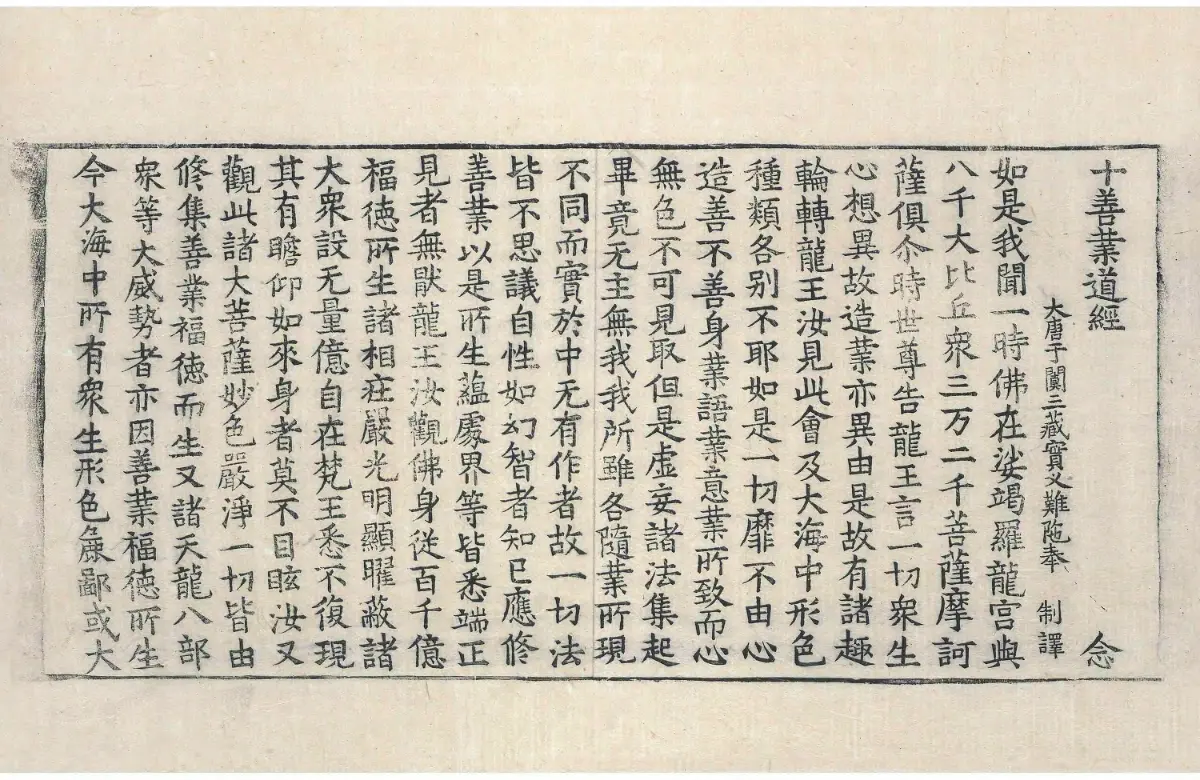 十善業道經 念
大唐于闐三藏實叉難陁奉 制譯
如是我聞一時佛在娑竭羅龍宮與
八千大比丘衆三万二千菩薩摩訶
薩俱尒時世尊告龍王言一切衆生
心想異故造業亦異由是故有諸趣
輪轉龍王汝見此會及大海中形色
種類各别不耶如是一切靡不由心
造善不善身業語業意業所致而心
無色不可見取但是虚妄諸法集起
畢竟无主無我我所雖各隨業所現
不同而實於中无有作者故一切法
皆不思議自性如幻智者知已應修
善業以是所生蘊處界等皆悉端正
見者無猒龍王汝觀佛身從百千億
福德所生諸相莊嚴光明顯曜蔽諸
大衆設无量億自在梵王悉不復現
其有瞻仰如來身者莫不目眩汝又
觀此諸大菩薩妙色嚴淨一切皆由
修集善業福德而生又諸天龍八部
衆等大威勢者亦因善業福德所生
今大海中所有衆生形色麁鄙或大